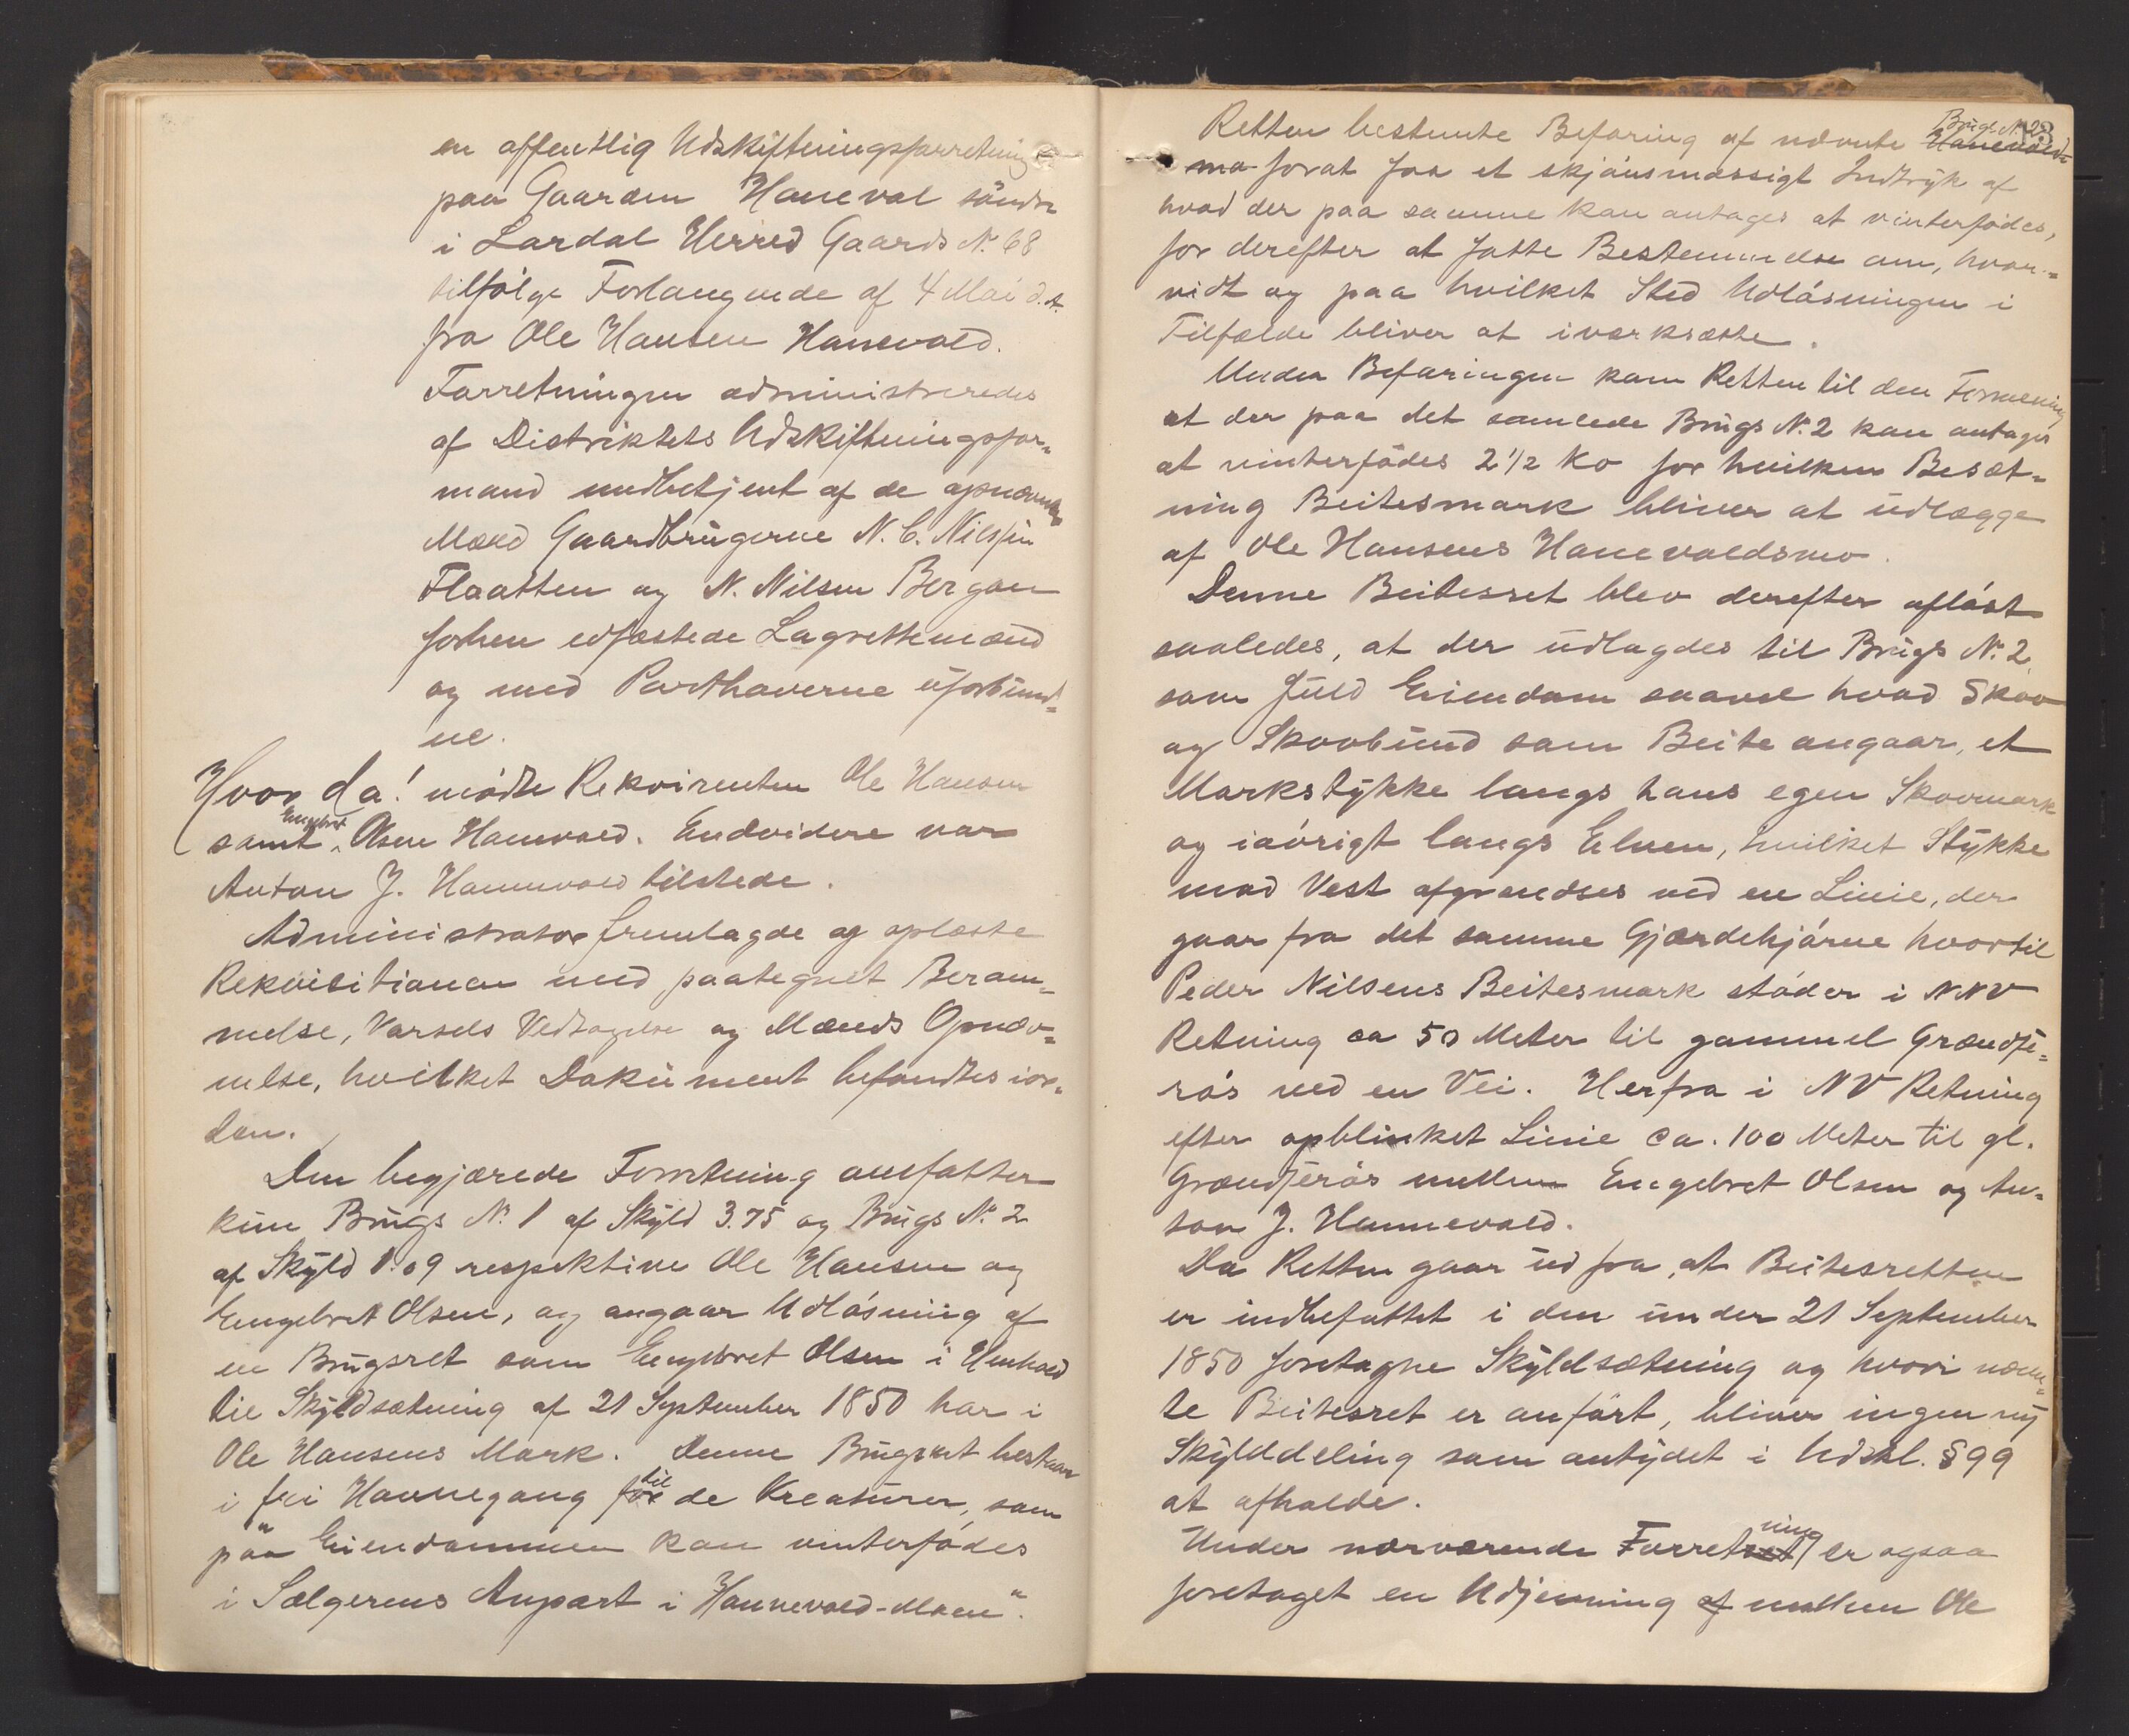 en offentlig Udskiftningsforretning
paa Gaarden Haneval söndre
i Lardal Herred Gaards No. 68
tilfölge Forlangende af 4 Mai d.A.
fra Ole Hansen Hanevold.
Forretningen administreredes
af Distriktets Udskiftningsfor=
mand medbetjent af de opnævnte
Mænd Gaardbrugerne N. C. Nilssen
Flaatten og N. Nilsen Bergan
forhen edfæstede Lagrettemænd
og med Parthaverne uforbund=
ne.
Hvor da! mödte Rekvirenten Ole Hansen
samt Engebret Olsen Hanevold. Endvidere var
Anton J. Hannevold tilstede.
Administrator fremlagde og oplæste
Rekvisitionen med paategnet Beram=
melse, Varsels Vedtagelse og Mænds Opnæv=
nelse, hvilket Dokument befandtes ior=
den.
Den begjærede Forretning omfatter
kun Brugs No. 1 af Skyld 3.75 og Brugs No. 2
af Skyld 1.09 respektive Ole Hansen og
Engebret Olsen, og angaar Udlösning af
en Brugsret som Engebret Olsen i Henhold
til Skyldsætning af 21 September 1850 har i
Ole Hansens Mark. Denne Brugsret bestaar
i fri Havnegang for til de Kreaturer, som
"paa Eiendommen kan vinterfödes
i Sælgerens Anpart i Hannevold-Moen".
Retten bestemte Befaring af nævnte Hanevolds Brugs No. 2
mo forat faa et skjönsmæssigt Indtryk af
hvad der paa samme kan antages at vinterfödes,
for derefter at fatte Bestemmelse om, hvor=
vidt og paa hvilket Sted Udlösningen i
Tilfælde bliver at iværksætte.
Under Befaringen kom Retten til den Formening
at der paa det samlede Brugs No. 2 kan antages
at vinterfödes 2 1/2 Ko for hvilken Besæt=
ning Beitesmark bliver at udlægge
af Ole Hansens Hanevoldsmo.
Denne Beitesret blev derefter aflöst
saaledes, at der udlagdes til Brugs No. 2
som fuld Eiendom saavel hvad Skov
og Skovbund som Beite angaar, et
Markstykke langs hans egen Skovmark
og iövrigt langs Elven, hvilket Stykke
mod Vest afgrændses ved en Linie, der
gaar fra det samme Gjærdehjörne hvortil
Peder Nilsens Beitesmark stöder i NNV
Retning ca 50 Meter til gammel Grændse=
rös ved en Vei. Herfra i NV Retning
efter opblinket Linie ca. 100 Meter til gl.
Grændserös mellem Engebret Olsen og An=
ton J. Hannevold.
Da Retten gaar ud fra, at Beitesretten
er indbefattet i den under 21 September
1850 foretagne Skyldsætning og hvori nævn=
te Beitesret er anfört, bliver ingen ny
Skylddeling som antydet i Udskl. § 99
at afholde.
Under nærværende Forretning er ogsaa
foretaget en Udjevning af mellem Ole